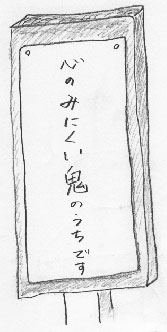 心のみにくい鬼のうちです